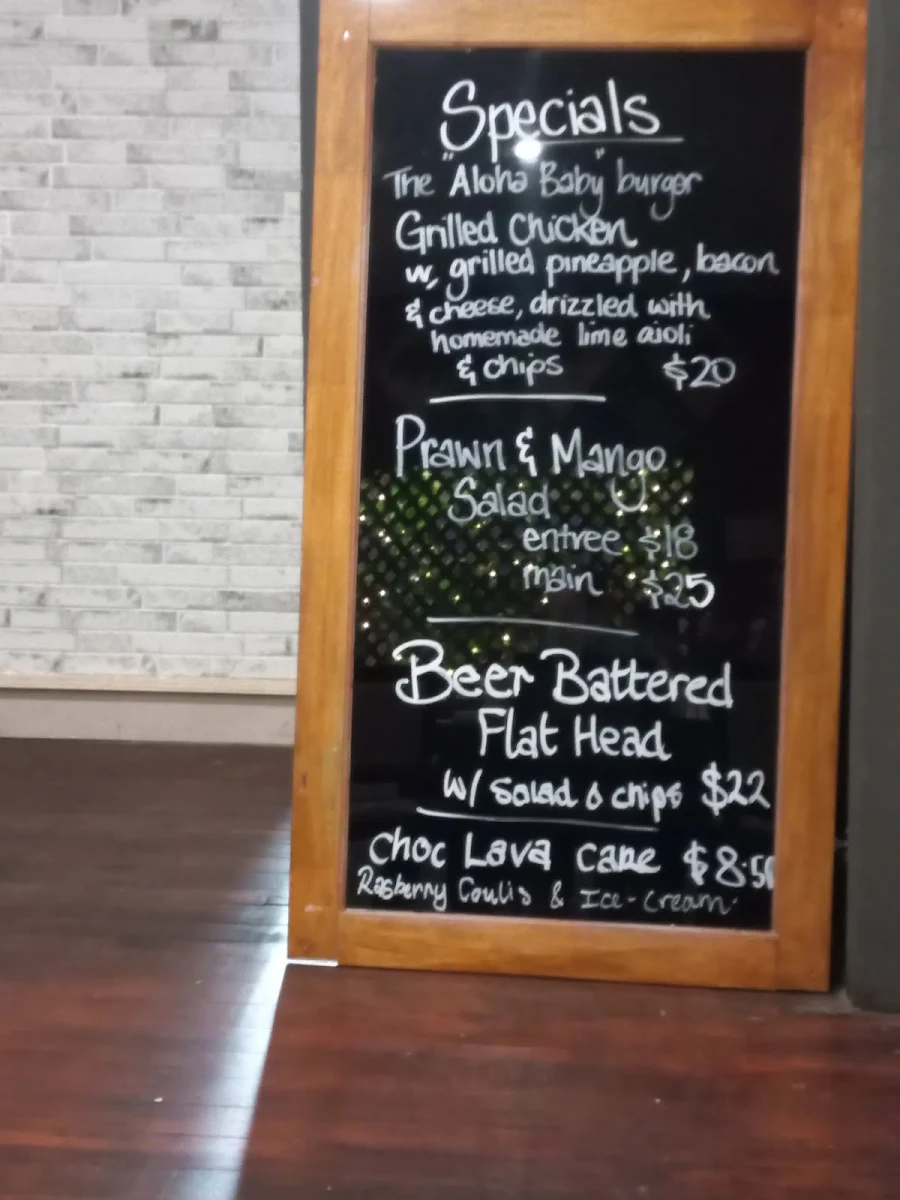 Specials
The "Aloha Baby" burger
Grilled Chicken
w, grilled pineapple, bacon
& cheese, drizzled with
homemade lime aioli
& chips $20
Prawn & Mango
Salad
entree $18
main $25
Beer Battered
Flat Head
w/ Salad & chips $22
Choc Lava cake $8.50
Rasberry Coulis & Ice-cream.